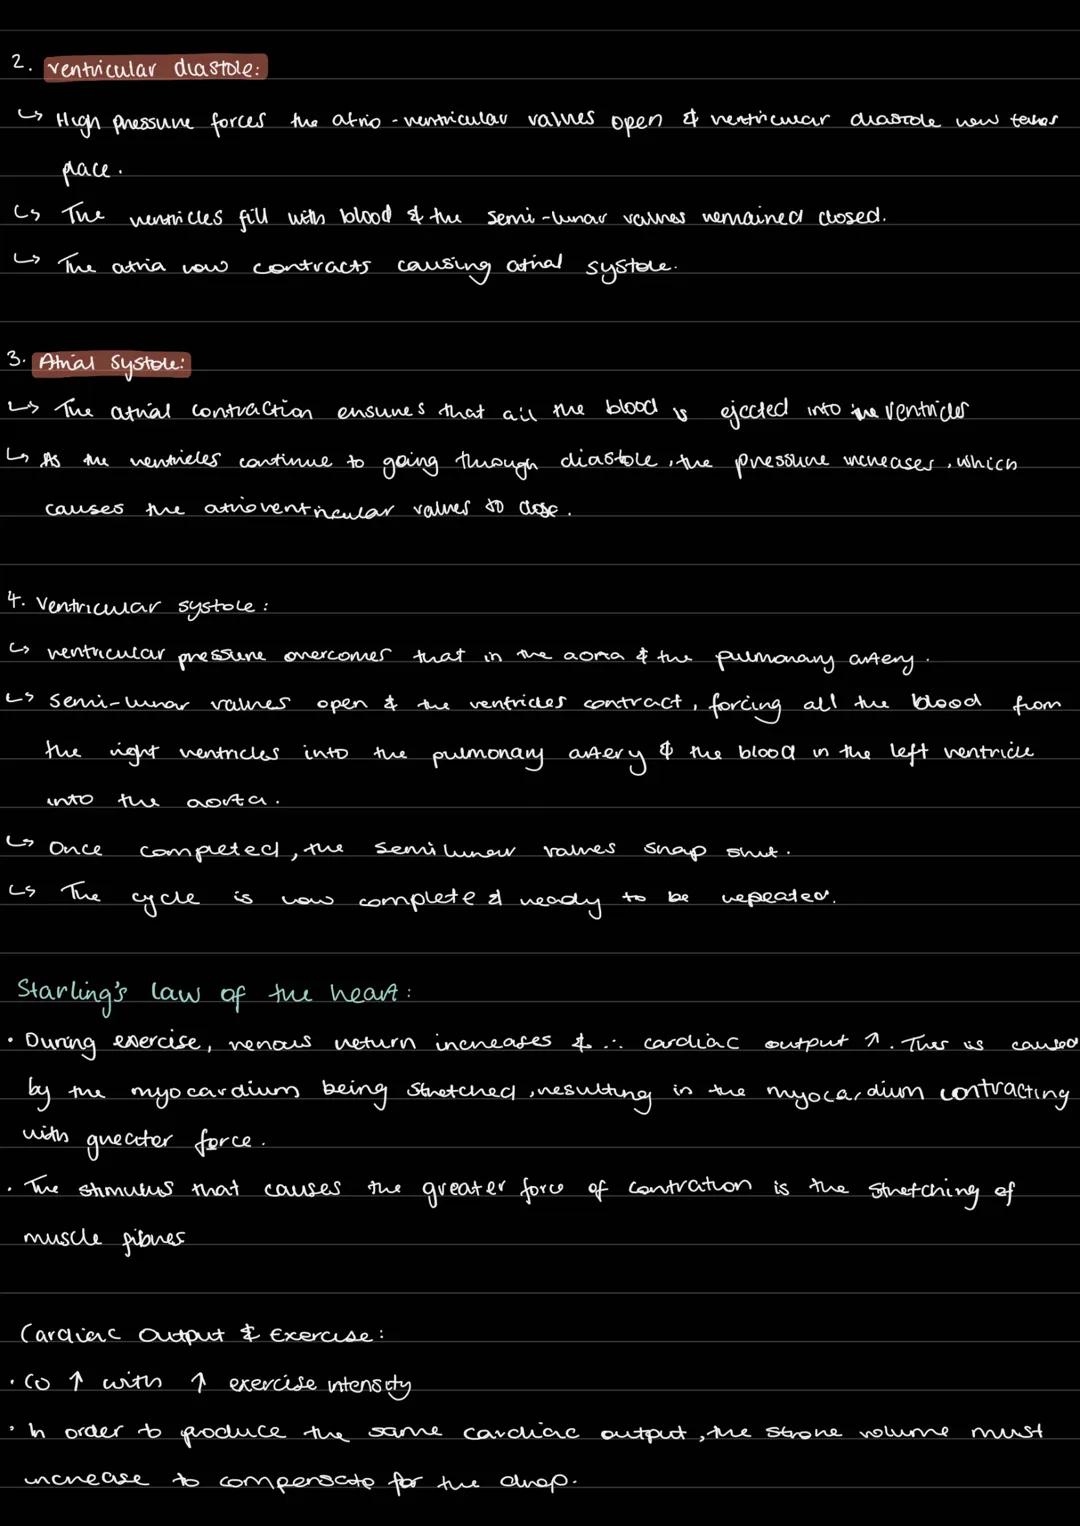 2. ventricular diastole:
↳ High pressure forces the atrio-ventricular valves open & ventricular diastole now takes
place.
↳ The ventricles fill with blood & the semi-lunar valves remained closed.
↳ The atria now contracts causing atrial systole.
3. Atrial Systole:
↳ The atrial contraction ensures that all the blood is ejected into the ventricles
↳ As the ventricles continue to going through diastole, the pressure increases, which
causes the atrioventricular valves to close.
4. Ventricular systole:
↳ ventricular pressure overcomes that in the aorta & the pulmonary artery.
↳ Semi-lunar valves open & the ventricles contract, forcing all the blood from
the right ventricles into the pulmonary artery & the blood in the left ventricle
into the aorta.
↳ Once completed, the semilunar valves snap shut.
↳ The cycle is now complete & ready to be repeated.
Starling's law of the heart:
• During exercise, venous return increases & ∴ cardiac output ↑. This is caused
by the myocardium being stretched, resulting in the myocardium contracting
with greater force.
• The stimulus that causes the greater force of contration is the stretching of
muscle fibres
Cardiac Output & Exercise:
• CO ↑ with ↑ exercise intensity
• In order to produce the same cardiac output, the stroke volume must
increase to compensate for the drop.